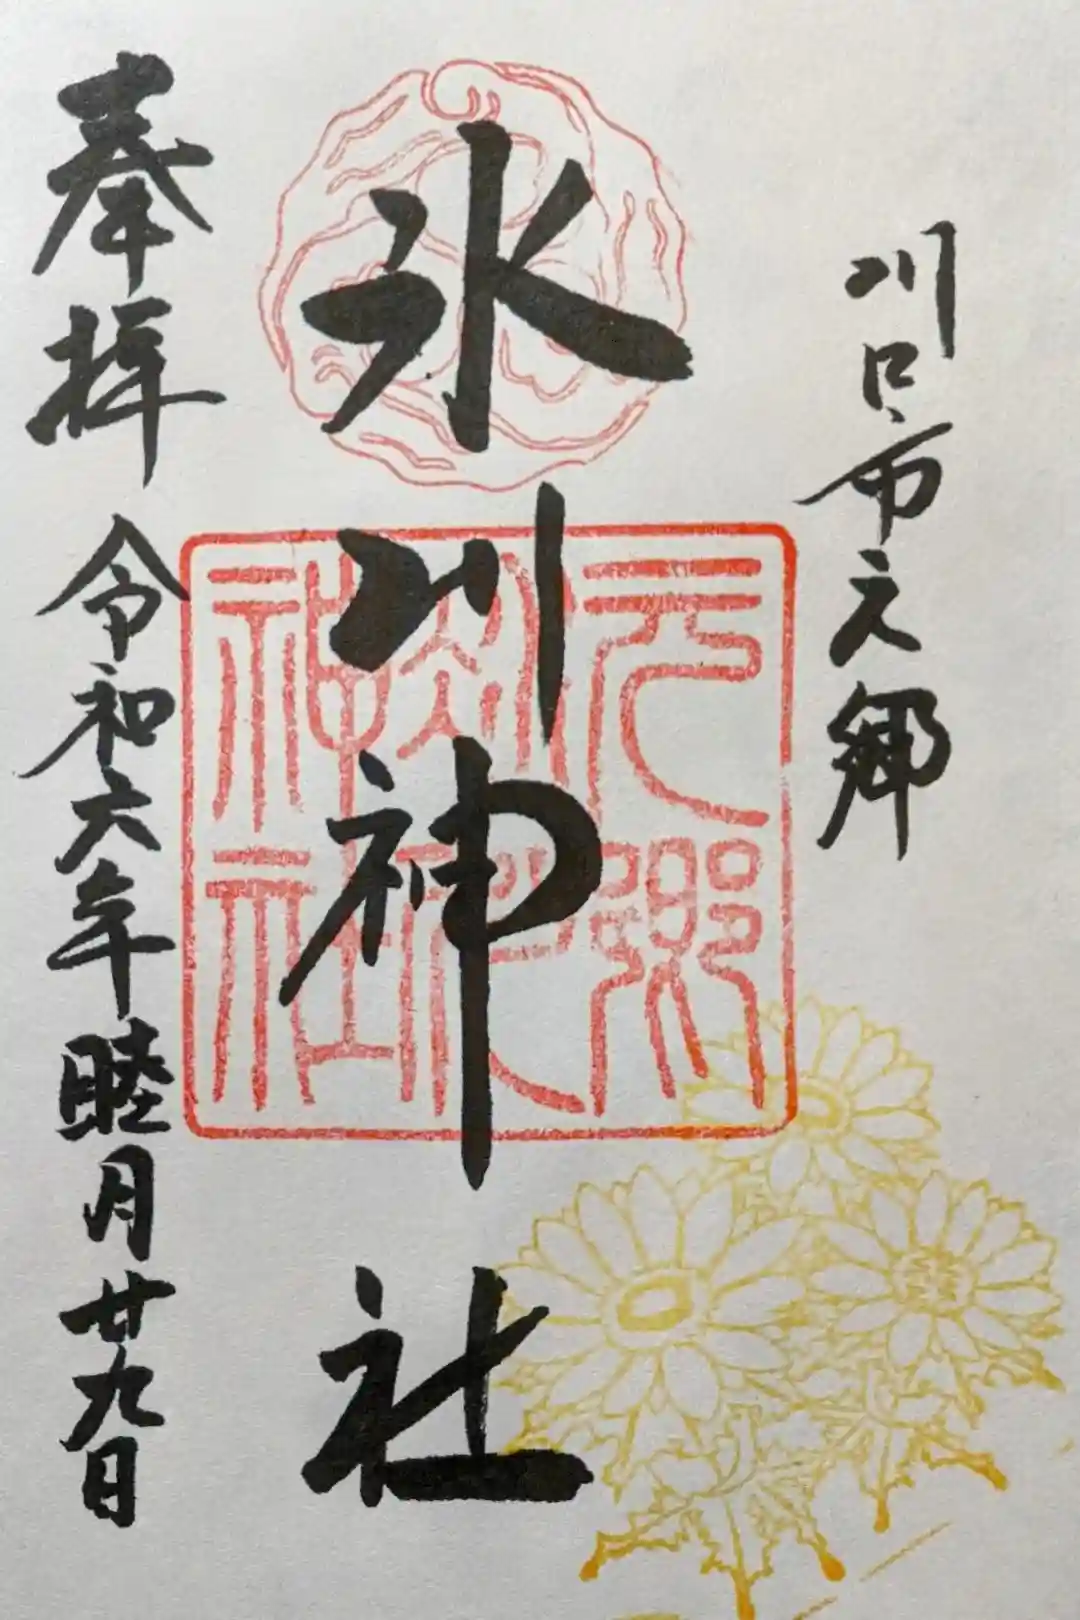 川口市元郷
氷川神社
奉拝 令和六年睦月廿九日
元郷
神社